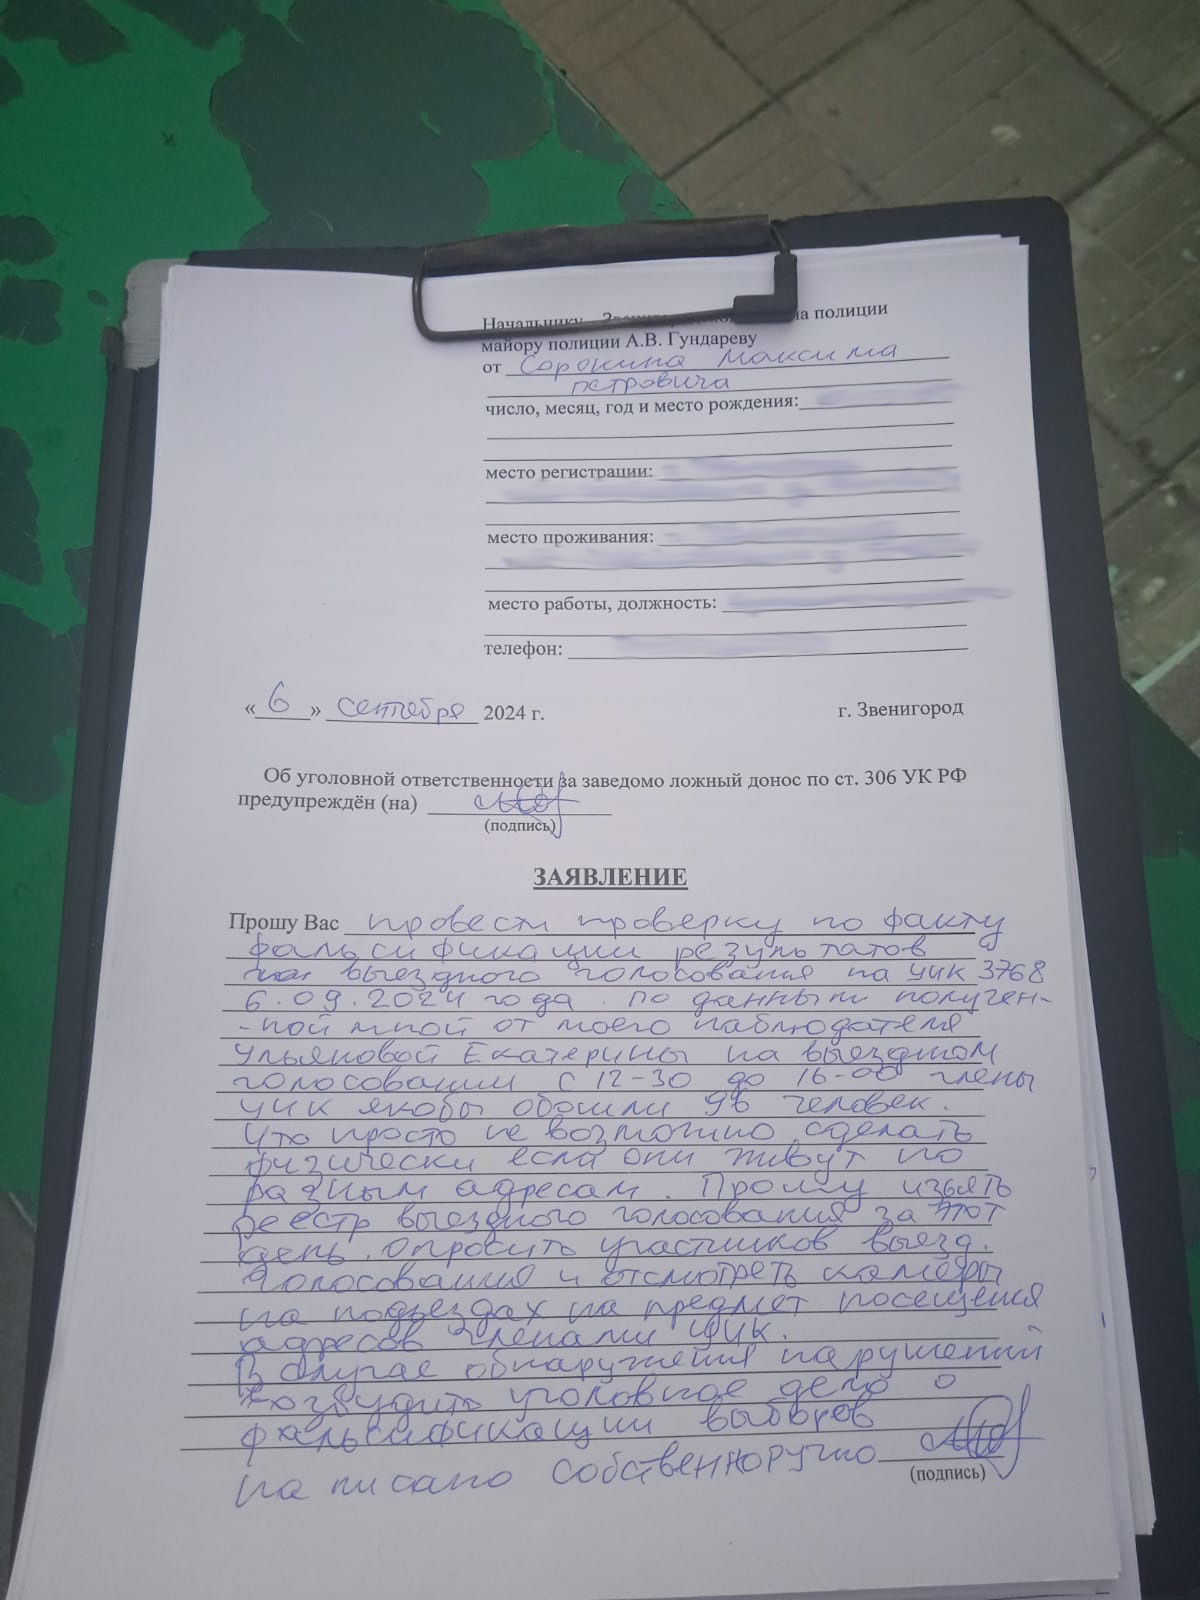 Начальнику полиции
майору полиции А.В. Гундареву
от Сорокина Максима
Петровича
число, месяц, год и место рождения:
место регистрации:
место проживания:
место работы, должность:
телефон:
«6» сентября 2024 г. г. Звенигород
Об уголовной ответственности за заведомо ложный донос по ст. 306 УК РФ
предупреждён (на)
(подпись)
ЗАЯВЛЕНИЕ
Прошу Вас провести проверку по факту
фальсификации результатов
выездного голосования на УИК 3768
6.09.2024 года. По данным получен-
-ной мной от моего наблюдателя
Ульяновой Екатерины на выездном
голосовании с 12-30 до 16-00 члены
УИК якобы обошли 96 человек.
Что просто не возможно сделать
физически если они живут по
разным адресам. Прошу изъять
реестр выездного голосования за этот
день. Опросить участников выезд.
голосования и отсмотреть камеры
на подъездах на предмет посещения
адресов членами УИК.
В случае обнаружения нарушений
возбудить уголовное дело о
фальсификации выборов
написано собственноручно
(подпись)